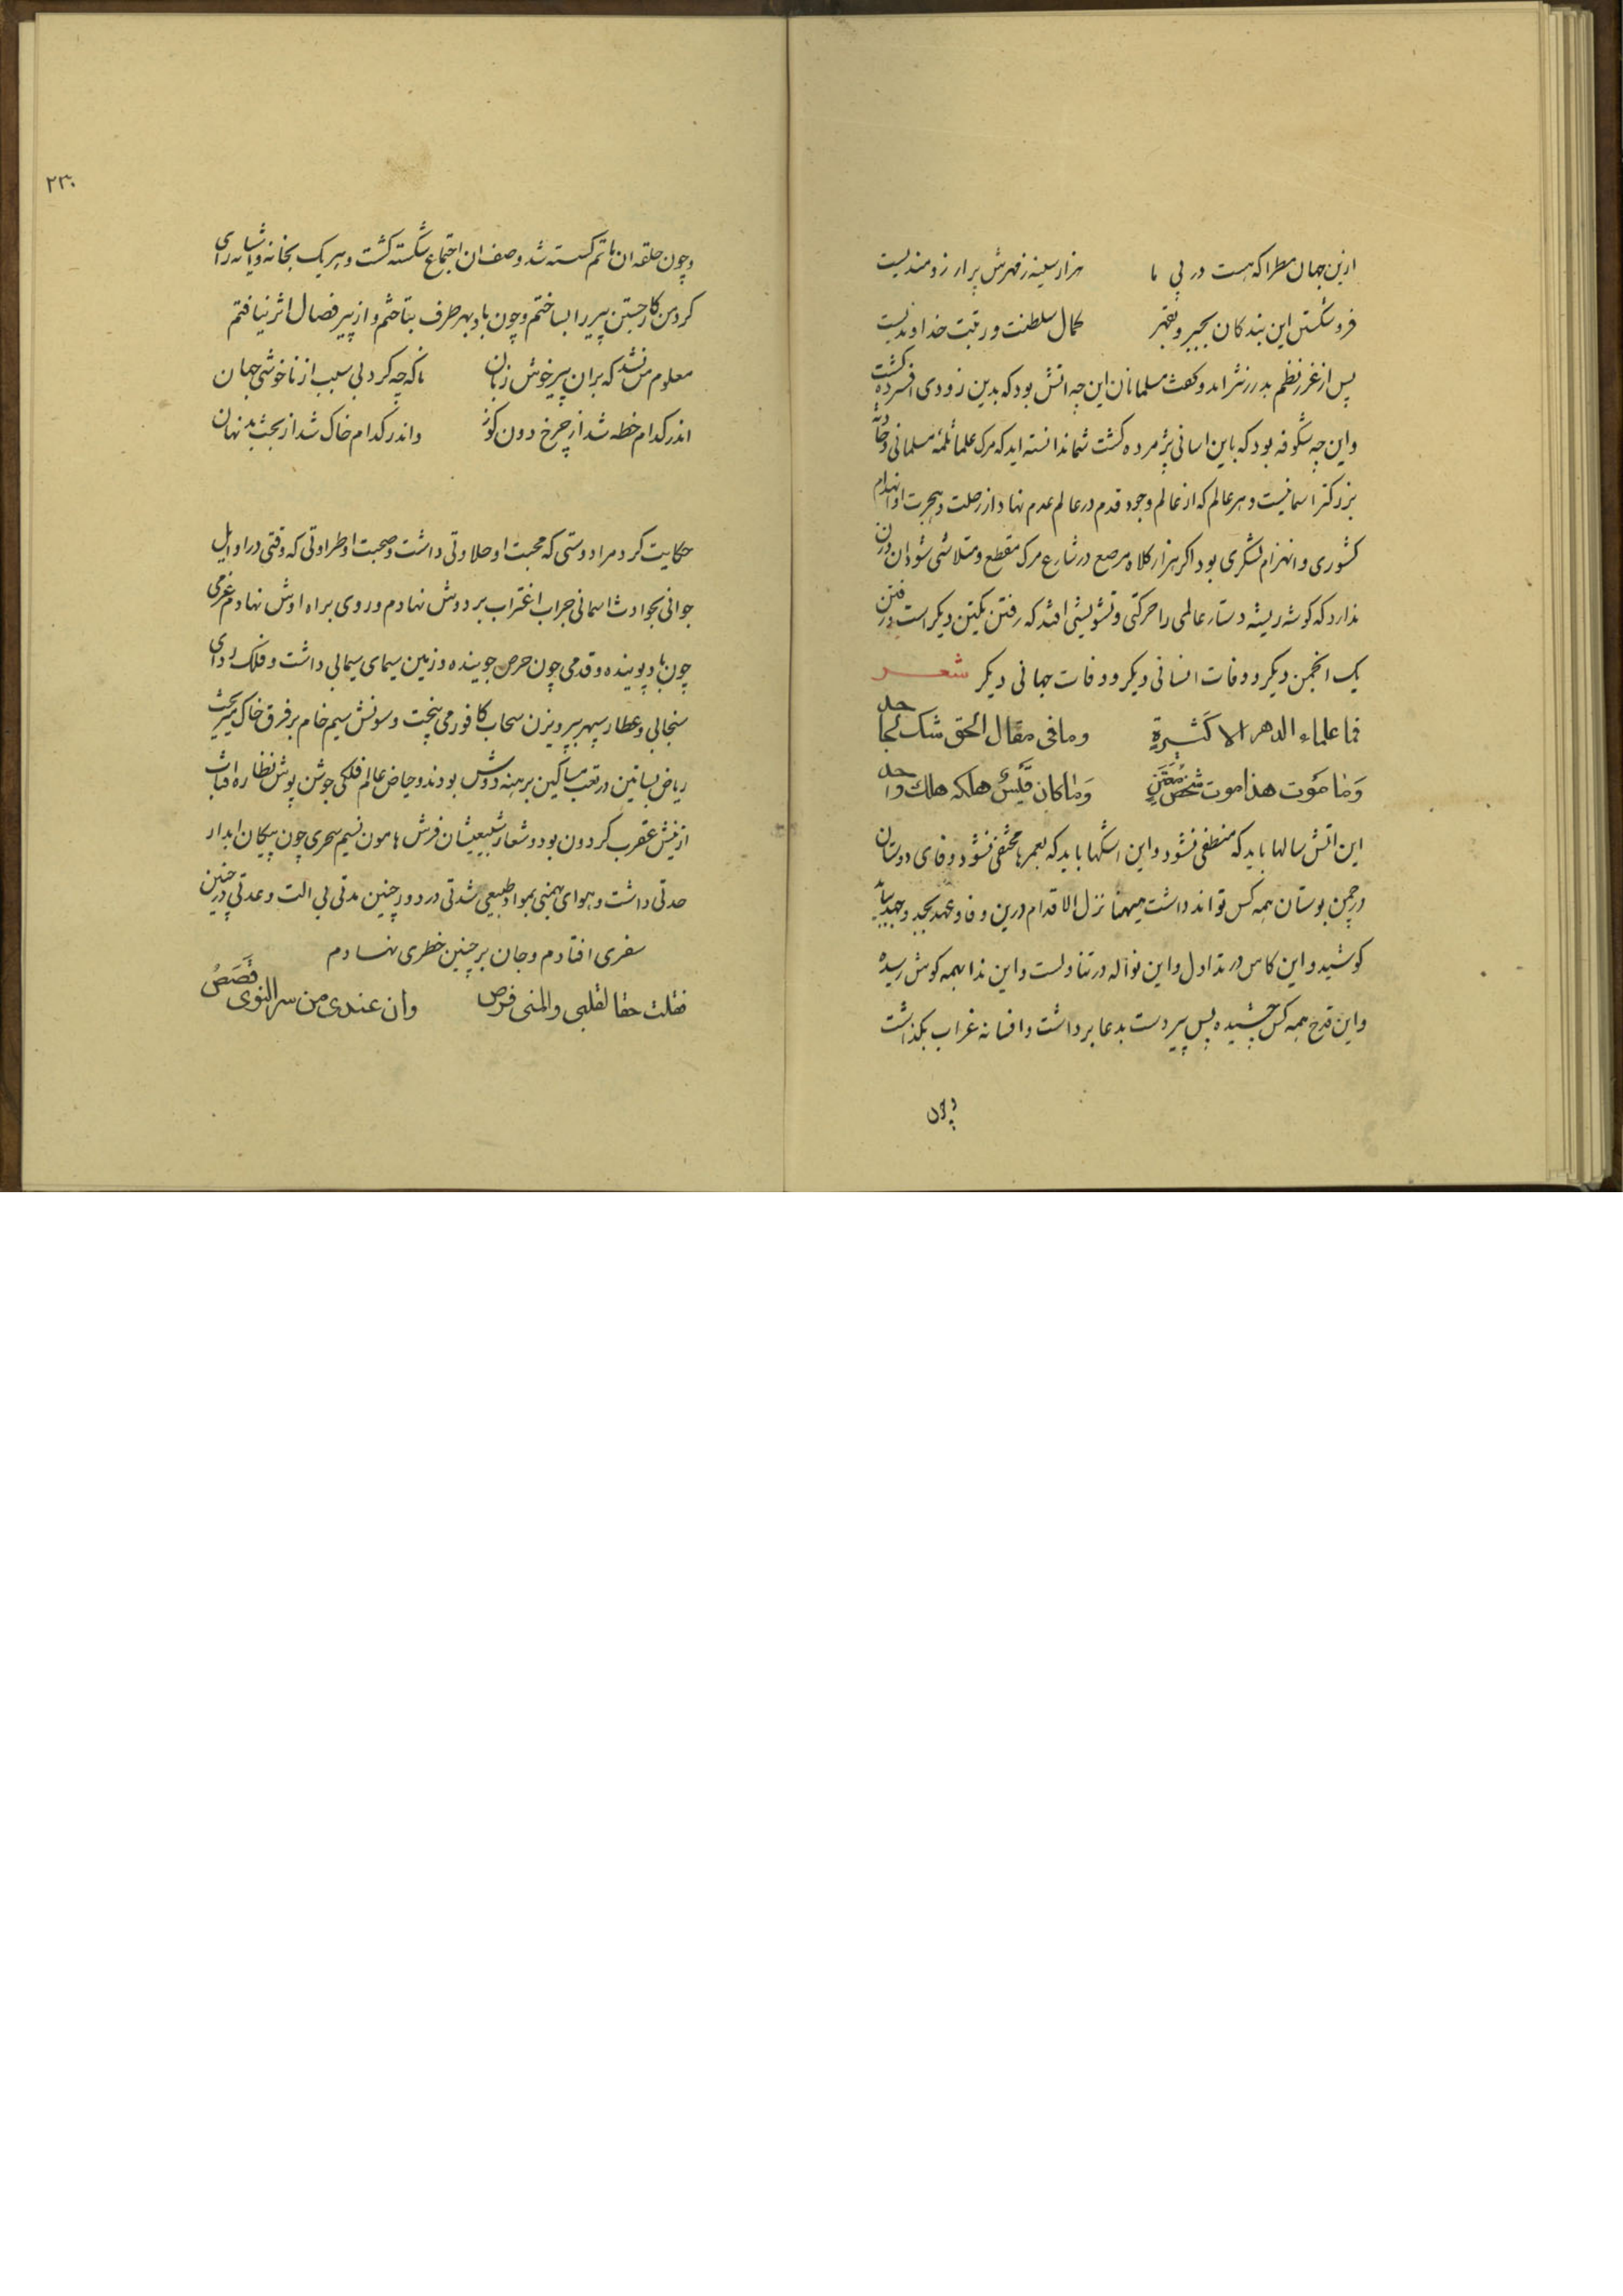 ازین جهان مطرا که هست در پی ما هزار سینه ز مهرش پر ار زومندیست
فرو شکستن این بندکان بجبر و بقهر کمال سلطنت و رتبت خداوندیست
پس از غرر نظم بدرر نثر امد و کفت مسلمانان این چه اتش بود که بدین زودی افسرده کشت
و این چه شکوفه بود که باین اسانی پژمرده کشت شما ندانسته اید که مرک علما ثلمهٔ مسلمانی و حادثهٔ
بزرکتر اسمانیست و هر عالم که از عالم وجود قدم در عالم عدم نهاد از رحلت و هجرت او انهدام
کشوری و انهزام لشکری بود اکر هزار کلاه مرصع در شارع مرک مقطع و متلاشی شود ان وزن
ندارد که کوشه ریشه دستار عالمی را حرکتی و تشویشی افتد که رفتن یکتن دیکر است و رفتن
یک انجمن دیکر و وفات انسانی دیکر و وفات جهانی دیکر شعر
فما علماء الدهر الا کثیرة وما فی مقال الحق شک لجاحد
وما موت هذا موت شخص معین وما کان قیس هلکه هلک واحد
این اتش سالها باید که منطفی نشود و این اشکها باید که بعمرها مختفی نشود وفای دوستان
در چمن بوستان همه کس تواند داشت هیهنا تزل الاقدام درین وفا و عهد بجد و جهد بباید
کوشید و این کاس در تداول و این نواله در تناولست و این ندا بهمه کوش رسیده
و این قدح همه کس چشیده پس پیر دست بدعا برداشت و افسانه غراب بکذاشت
و چون
۲۳۰
و چون حلقه ان ماتم کسسته شد و صف ان اجتماع شکسته کشت و هریک بخانه و اشیانه رای
کرد من کار جستن پیر را بساختم و چون باد بهر طرف بتاختم و از پیر فصال اثر نیافتم
معلوم من نشد که بران پیر خوش زبان ناکه چه کرد بی سبب از ناخوشی جهان
اندر کدام خطه شد از چرخ دون کوز واندر کدام خاک شد از بخت بد نهان
حکایت کرد مرا دوستی که محبت او حلاوتی داشت و صحبت او طراوتی که وقتی در اوایل
جوانی بحوادث اسمانی جراب اغتراب بر دوش نهادم و روی براه اوش نهادم عزمی
چون باد پوینده و قدمی چون حرص جوینده و زمین سیمای سیمابی داشت و فلک ردای
سنجابی و عطار سپهر بپرویزن سحاب کافور می بیخت و سونش سیم خام بر فرق خاک میریخت
ریاض بساتین در تعب مساکین برهنه دوش بودند و حیاض عالم فلکی جوشن پوش نظاره افتاب
از نیش عقرب کردون بود و شعار طبیعیشان فرش هامون نسیم سحری چون پیکان ابدار
حدتی داشت و هوای بهمنی بمواد طبیعی شدتی در دور چنین مدتی بی الت و عدتی در چنین
سفری افتادم و جان بر چنین خطری نهادم
فقلت حقا لقلبی والمنی فرص وان عندی من سر النوی قصص